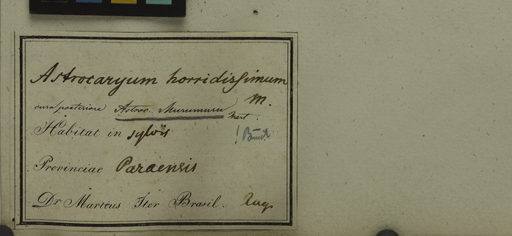 Astrocaryum horridissimum
M.
cura posteriore Astroc. Murumuru Mart.
Habitat in sylvis
Provinciae Paraensis
Dr. Martius Iter Brasil. Aug.